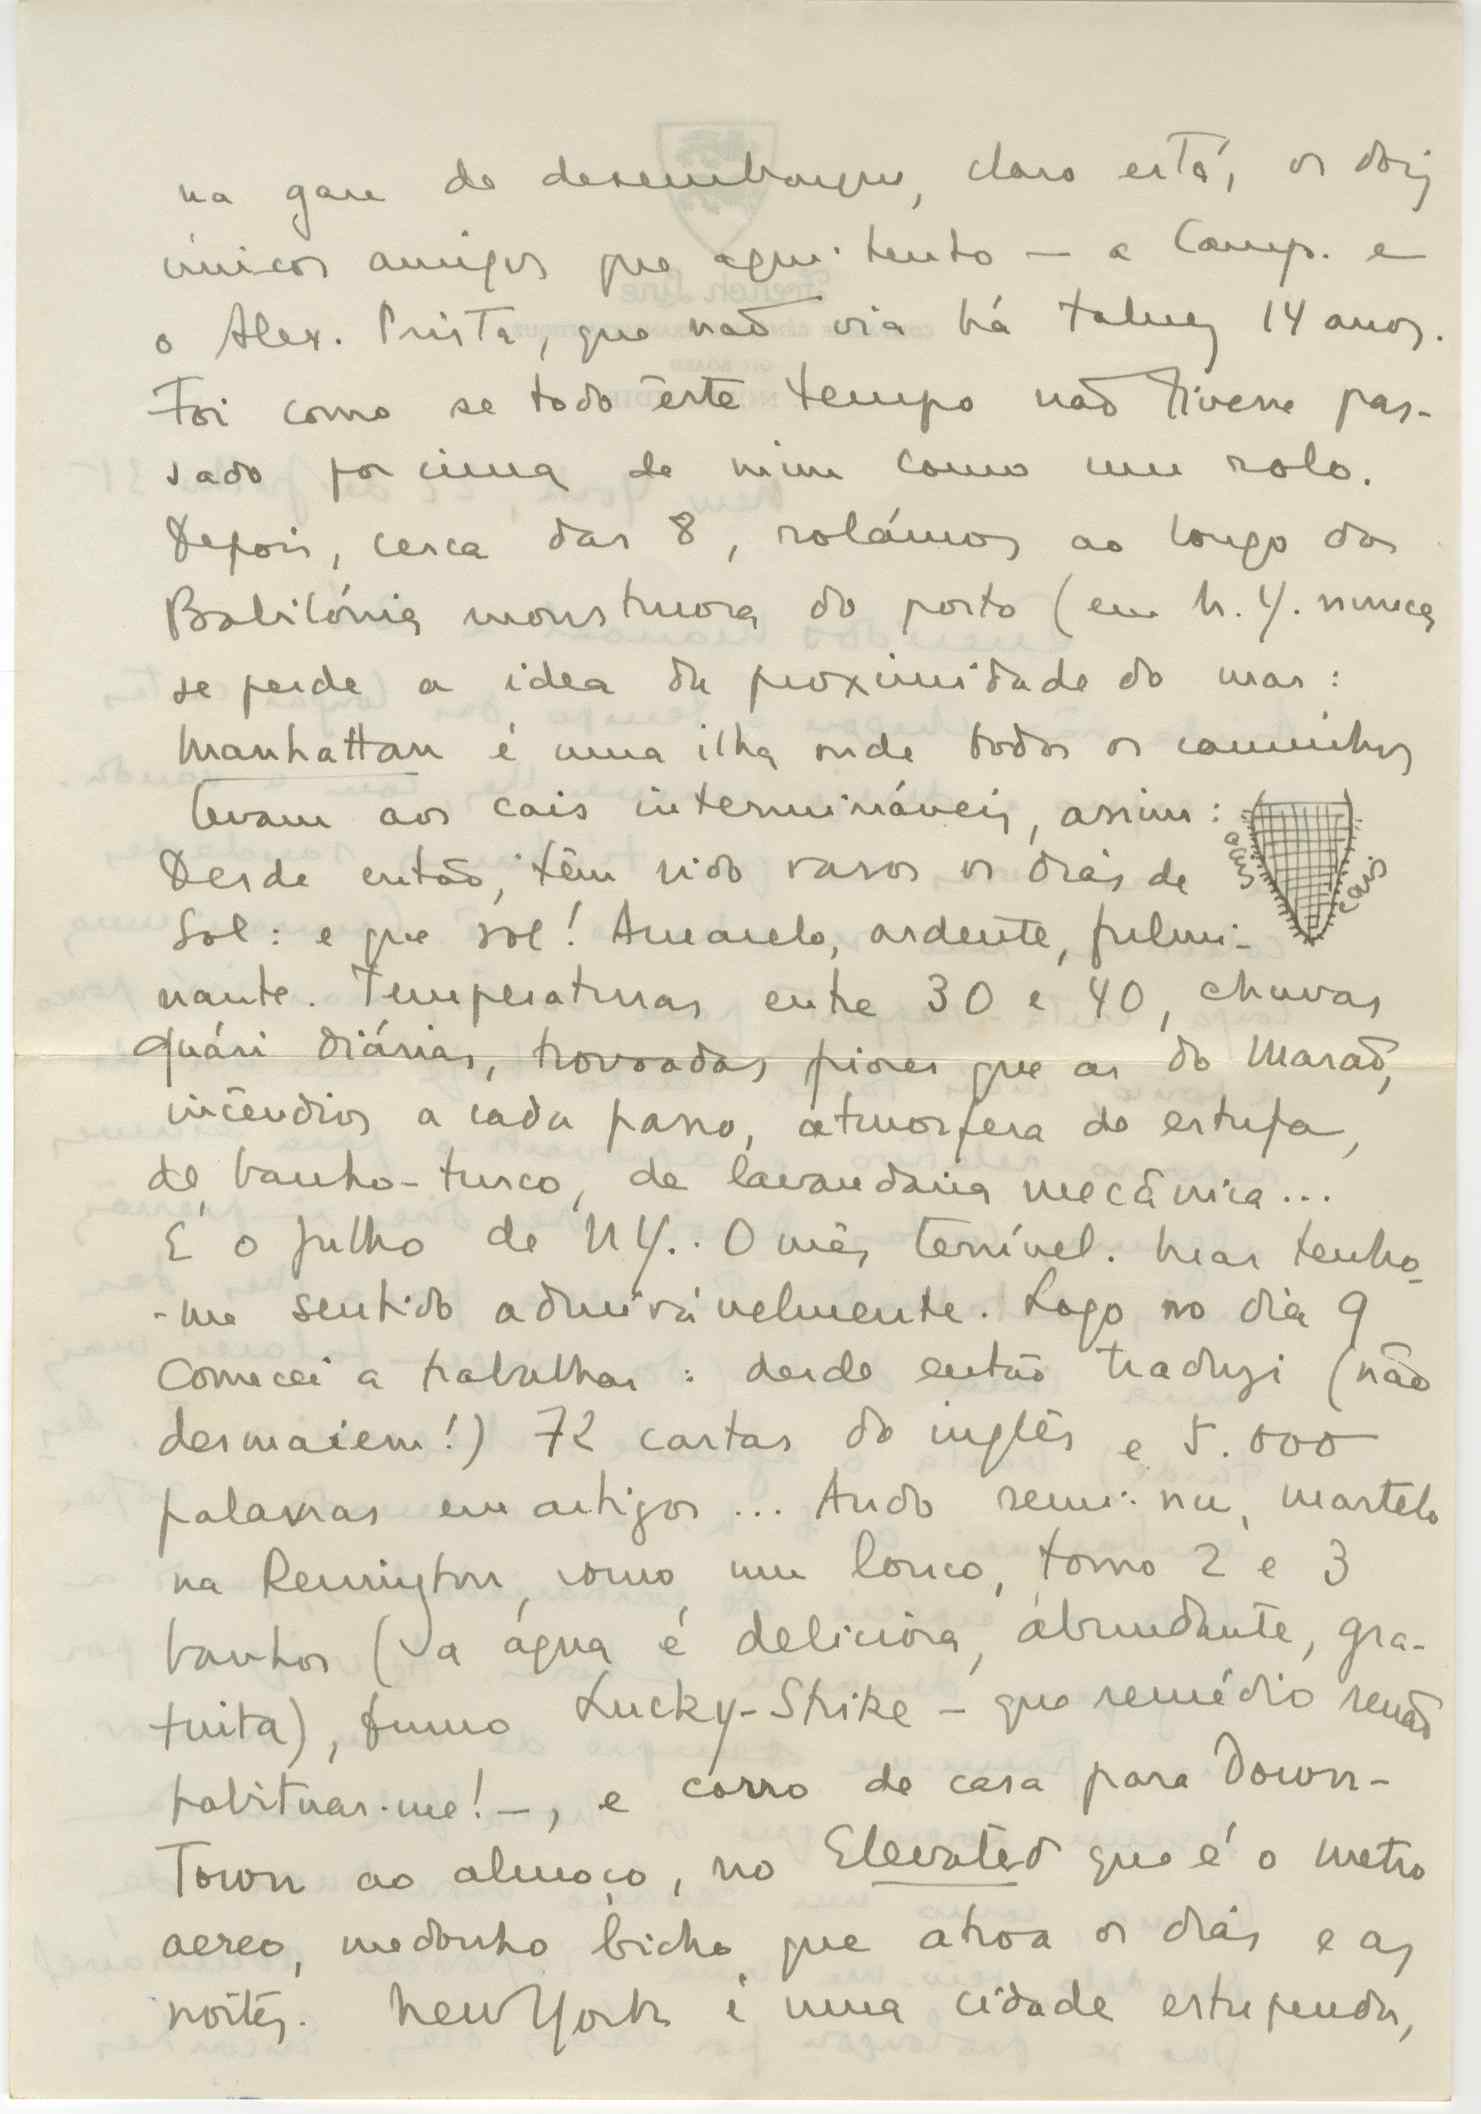 na gare de desembarque, claro está, os dois
únicos amigos que aqui tenho — a Comp. e
o Alex. Prista, que não via há talvez 14 anos.
Foi como se todo êste tempo não tivesse pas-
sado por cima de mim como um rolo.
Depois, cerca das 8, rolámos ao longo da
Babilónia monstruosa do porto (em N.Y. nunca
se perde a idea da proximidade do mar:
Manhattan é uma ilha onde todos os caminhos
levam aos cais intermináveis, assim:
cais
cais
Desde então, têm sido raros os dias de
Sol: e que sol! Amarelo, ardente, fulmi-
nante. Temperaturas entre 30 e 40, chuvas
quási diárias, trovoadas piores que as do Marão,
incêndios a cada passo, atmosfera de estufa,
de banho-turco, de lavandaria mecânica...
É o Julho de NY.. O mês terrível. Mas tenho-
-me sentido admirávelmente. Logo no dia 9
comecei a trabalhar: desde então traduzi (não
desmaiem!) 72 cartas do inglês e 5.000
palavras em artigos... Ando semi-nu, martelo
na Remington como um louco, tomo 2 e 3
banhos (a água é deliciosa, abundante, gra-
tuita), fumo Lucky-Strike - que remédio senão
habituar-me! -, e corro de casa para Down-
Town ao almoço, no Elevated que é o metro
aereo, medonho bicho que atroa os dias e as
noites. New York é uma cidade estupenda,